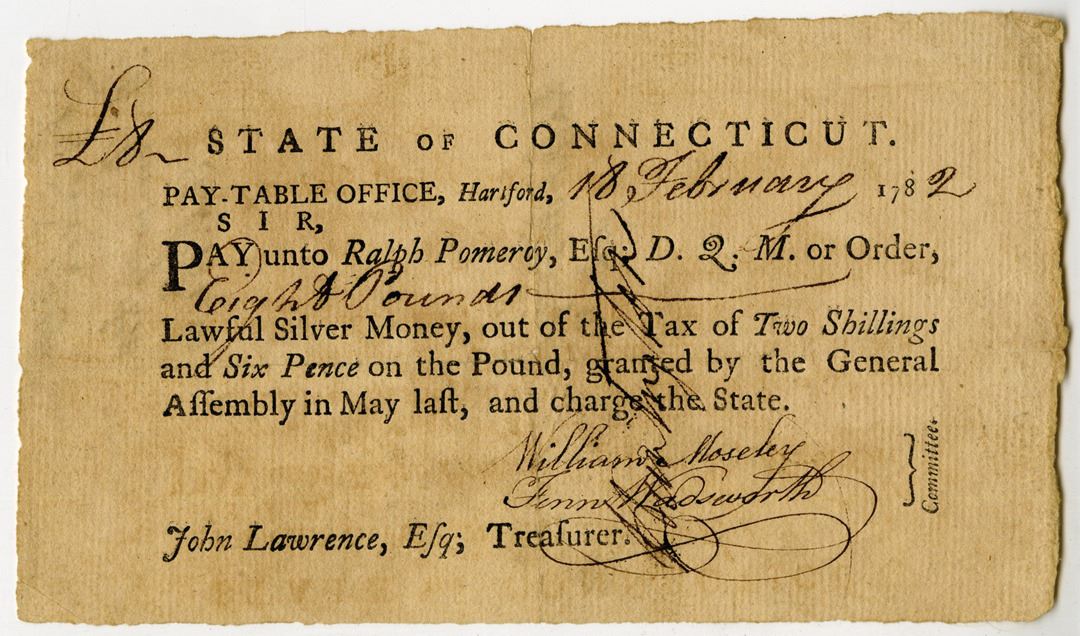 £8 STATE OF CONNECTICUT.
PAY-TABLE OFFICE, Hartford, 18, February 1782
SIR,
PAY unto Ralph Pomeroy, Eſq; D. Q. M. or Order,
Eight Pounds
Lawful Silver Money, out of the Tax of Two Shillings
and Six Pence on the Pound, granted by the General
Aſſembly in May laſt, and charge the State.
William Moseley
Fenn Wadsworth
Committee.
John Lawrence, Eſq; Treaſurer.